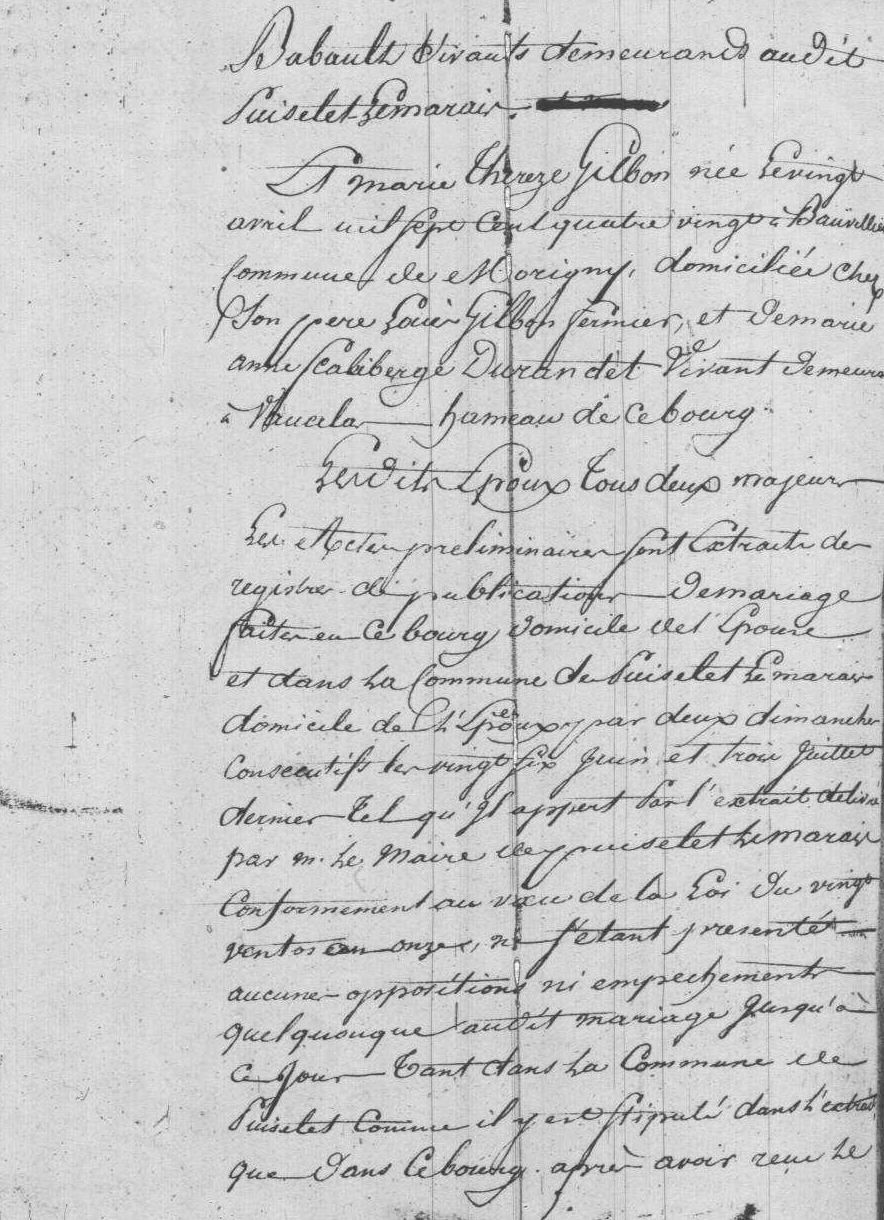 Babault vivants demeurands audit
Puiselet Lemarais.
Et marie thereze Gilbon née Levingt
avril mil sept Cent quatre vingt à Bauvillier
Commune de Morigny, domiciliée chez
Son pere Louis Gilbon fermier, et de marie
anne Scaliberge Durandet vivant demeur
à Vaucelas hameau de ce bourg
Lesdits Epoux tous deux majeurs
Les Actes preliminaires sont Extraits des
registres de publications de mariage
faites en Ce bourg domicile de l'Epouse
et dans La Commune de Puiselet Le marais
domicile de L'Epoux, par deux dimanches
Consecutifs les vingt six Juin et trois Juillet
dernier tel qu'Il appert Par l'extrait délivré
par m. Le Maire de puiselet Le marais
Conformement au vœu de la Loi du vingt
ventos an onze, ne s'étant presenté
aucunes oppositions ni empechements
quelquonque audit mariage Jusqu'à
ce Jour tant dans La Commune de
Puiselet Comme il y est stipulé dans L'extrait
que dans Ce bourg. après avoir reçu Le